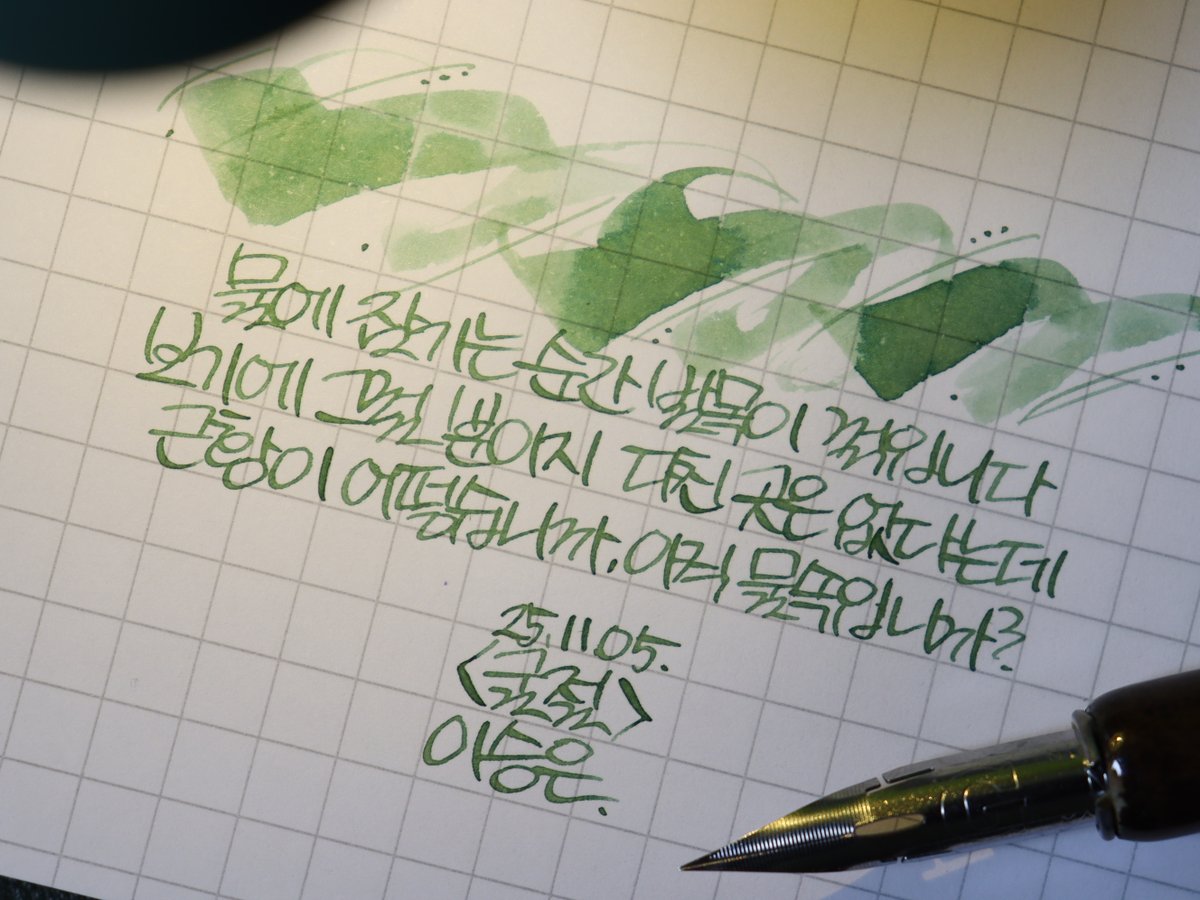 물에 잠기는 순간 발목이 꺾입니다
보기에 그럴 뿐이지 다친 곳은 없다는데
근황이 어떻습니까, 아직 물속입니까?
25.11.05.
<굴절>
이승은.